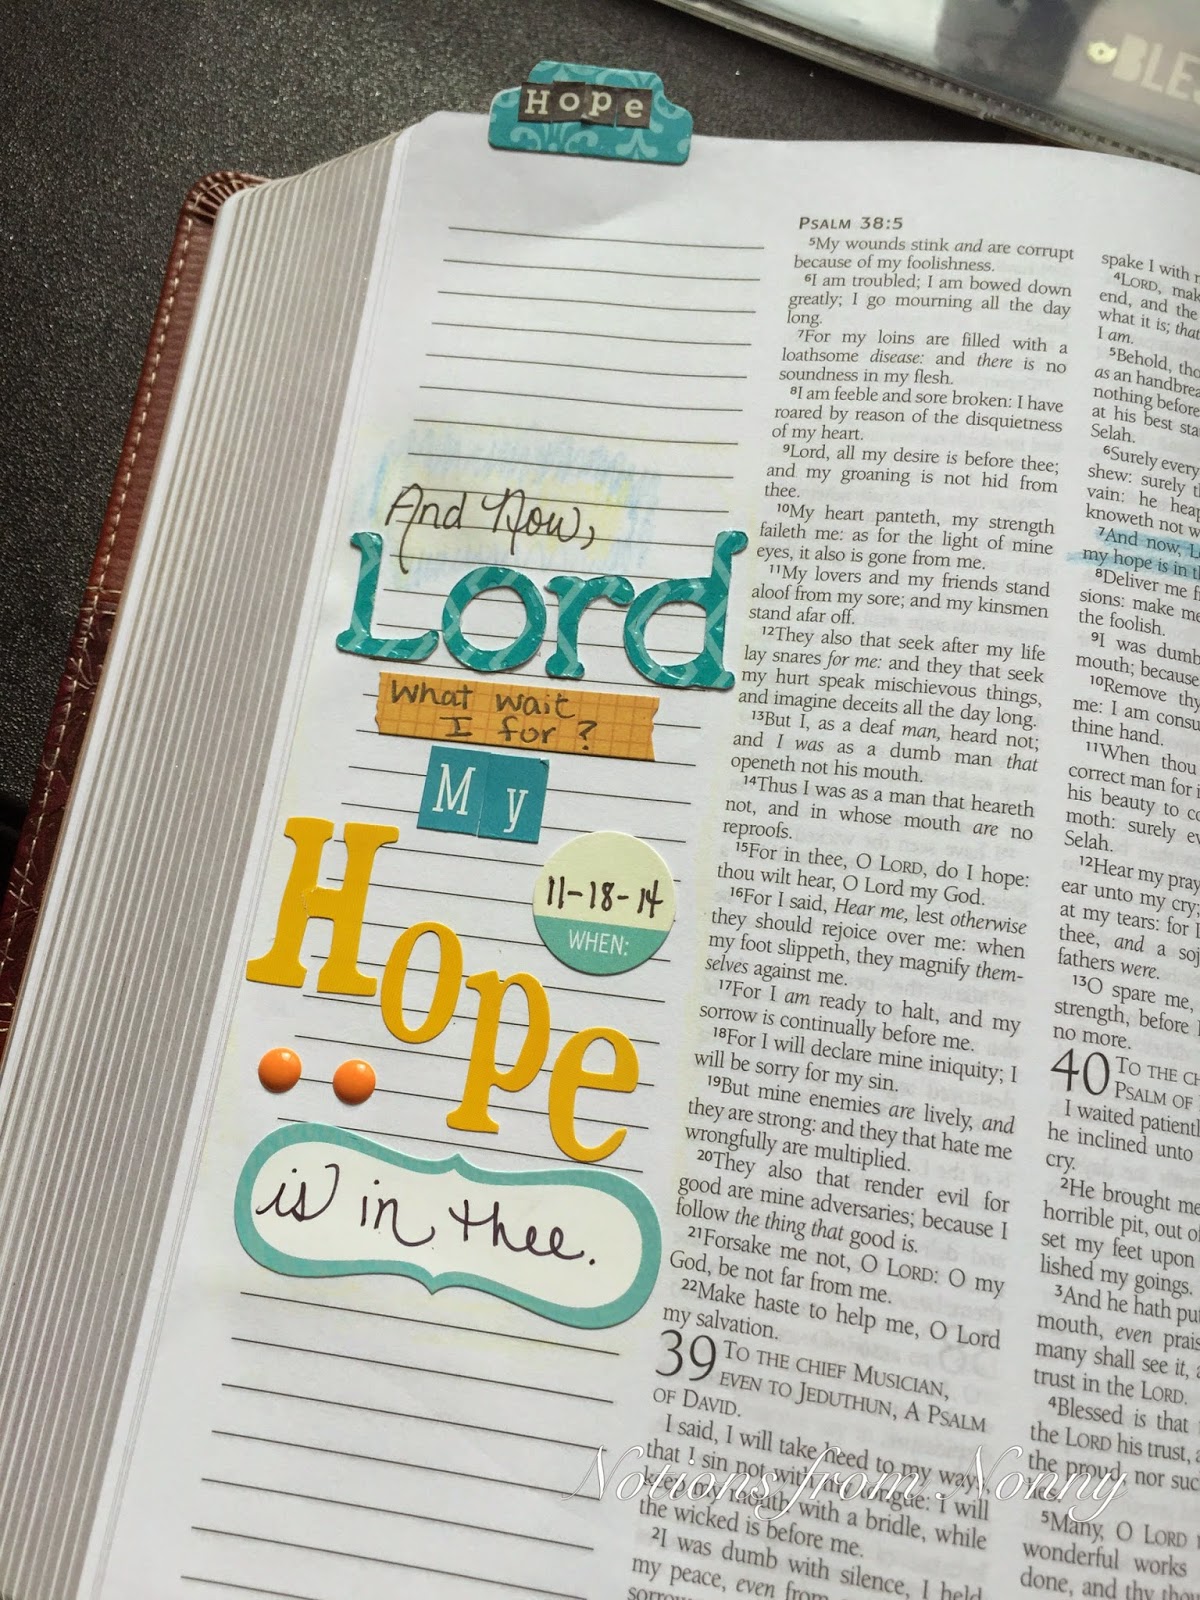 Hope
BLES
And Now,
Lord
What wait
I for?
My
Hope
11-18-14
WHEN:
is in thee.
PSALM 38:5
5My wounds stink and are corrupt
because of my foolishness.
6I am troubled; I am bowed down
greatly; I go mourning all the day
long.
7For my loins are filled with a
loathsome disease: and there is no
soundness in my flesh.
8I am feeble and sore broken: I have
roared by reason of the disquietness
of my heart.
9Lord, all my desire is before thee;
and my groaning is not hid from
thee.
10My heart panteth, my strength
faileth me: as for the light of mine
eyes, it also is gone from me.
11My lovers and my friends stand
aloof from my sore; and my kinsmen
stand afar off.
12They also that seek after my life
lay snares for me: and they that seek
my hurt speak mischievous things,
and imagine deceits all the day long.
13But I, as a deaf man, heard not;
and I was as a dumb man that
openeth not his mouth.
14Thus I was as a man that heareth
not, and in whose mouth are no
reproofs.
15For in thee, O LORD, do I hope:
thou wilt hear, O Lord my God.
16For I said, Hear me, lest otherwise
they should rejoice over me: when
my foot slippeth, they magnify them-
selves against me.
17For I am ready to halt, and my
sorrow is continually before me.
18For I will declare mine iniquity; I
will be sorry for my sin.
19But mine enemies are lively, and
they are strong: and they that hate me
wrongfully are multiplied.
20They also that render evil for
good are mine adversaries; because I
follow the thing that good is.
21Forsake me not, O LORD: O my
God, be not far from me.
22Make haste to help me, O Lord
my salvation.
39 TO THE CHIEF MUSICIAN,
EVEN TO JEDUTHUN, A PSALM
OF DAVID.
I said, I will take heed to my ways,
that I sin not with my tongue: I will
keep my mouth with a bridle, while
the wicked is before me.
2I was dumb with silence, I held
my peace, even from
sorrow
spake I with
4LORD, mak
end, and the
what it is; that
I am.
5Behold, tho
as an handbrea
nothing before
at his best sta
Selah.
6Surely every
shew: surely th
vain: he heap
knoweth not w
7And now, L
my hope is in th
8Deliver me f
sions: make me
the foolish.
9I was dumb
mouth; because
10Remove thy
me: I am consu
thine hand.
11When thou
correct man for i
his beauty to co
moth: surely eve
Selah.
12Hear my pray
ear unto my cry;
at my tears: for I
thee, and a soj
fathers were.
13O spare me,
strength, before I
no more.
40 TO THE CH
PSALM OF
I waited patiently
he inclined unto
cry.
2He brought me
horrible pit, out o
set my feet upon
lished my goings.
3And he hath put
mouth, even prais
many shall see it, a
trust in the LORD.
4Blessed is that
the LORD his trust, a
the proud, nor suc
lies.
5Many, O LORD
wonderful works
done, and thy tho
Notions from Nonny